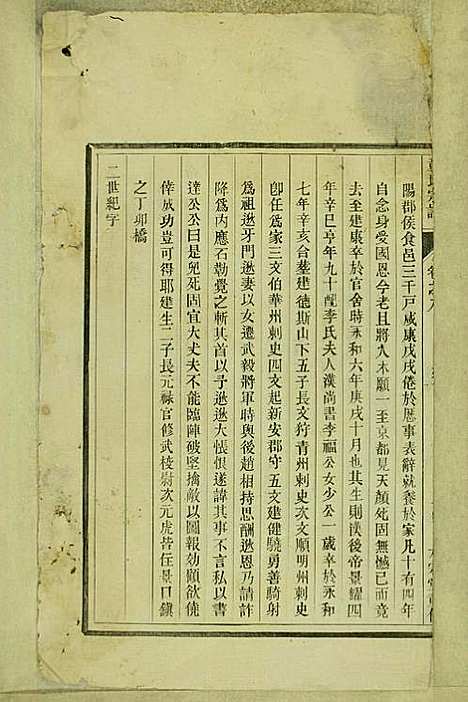 陽郡侯食邑三千戸咸康戊戌倦於厯事表辭就養於家凡十有四年
自念身受國恩今老且將入木願一至京都見天顔死固無憾已而竟
去至建康卒於官舍時永和六年庚戌十月也其生則漢後帝景耀四
年辛巳享年九十配李氏夫人漢尚書李福公女少公一歲卒於永和
七年辛亥合塟建德斯山下五子長文狩青州刺史次文順明州刺史
卽任爲家三文伯華州刺史四文起新安郡守五文建健驍勇善騎射
爲祖逖牙門逖妻以女遷武毅將軍時與後趙相持思酬逖恩乃請詐
降爲内應石勒覺之斬其首以予逖逖大悵恨遂諱其事不言私以書
達公公曰是兒死固宜大丈夫不能臨陣破堅擒敵以圖報効顧欲僥
倖成功豈可得耶建生二子長元祿官修武校尉次元虎皆任景口鎮
之丁卯橋
二世紀字